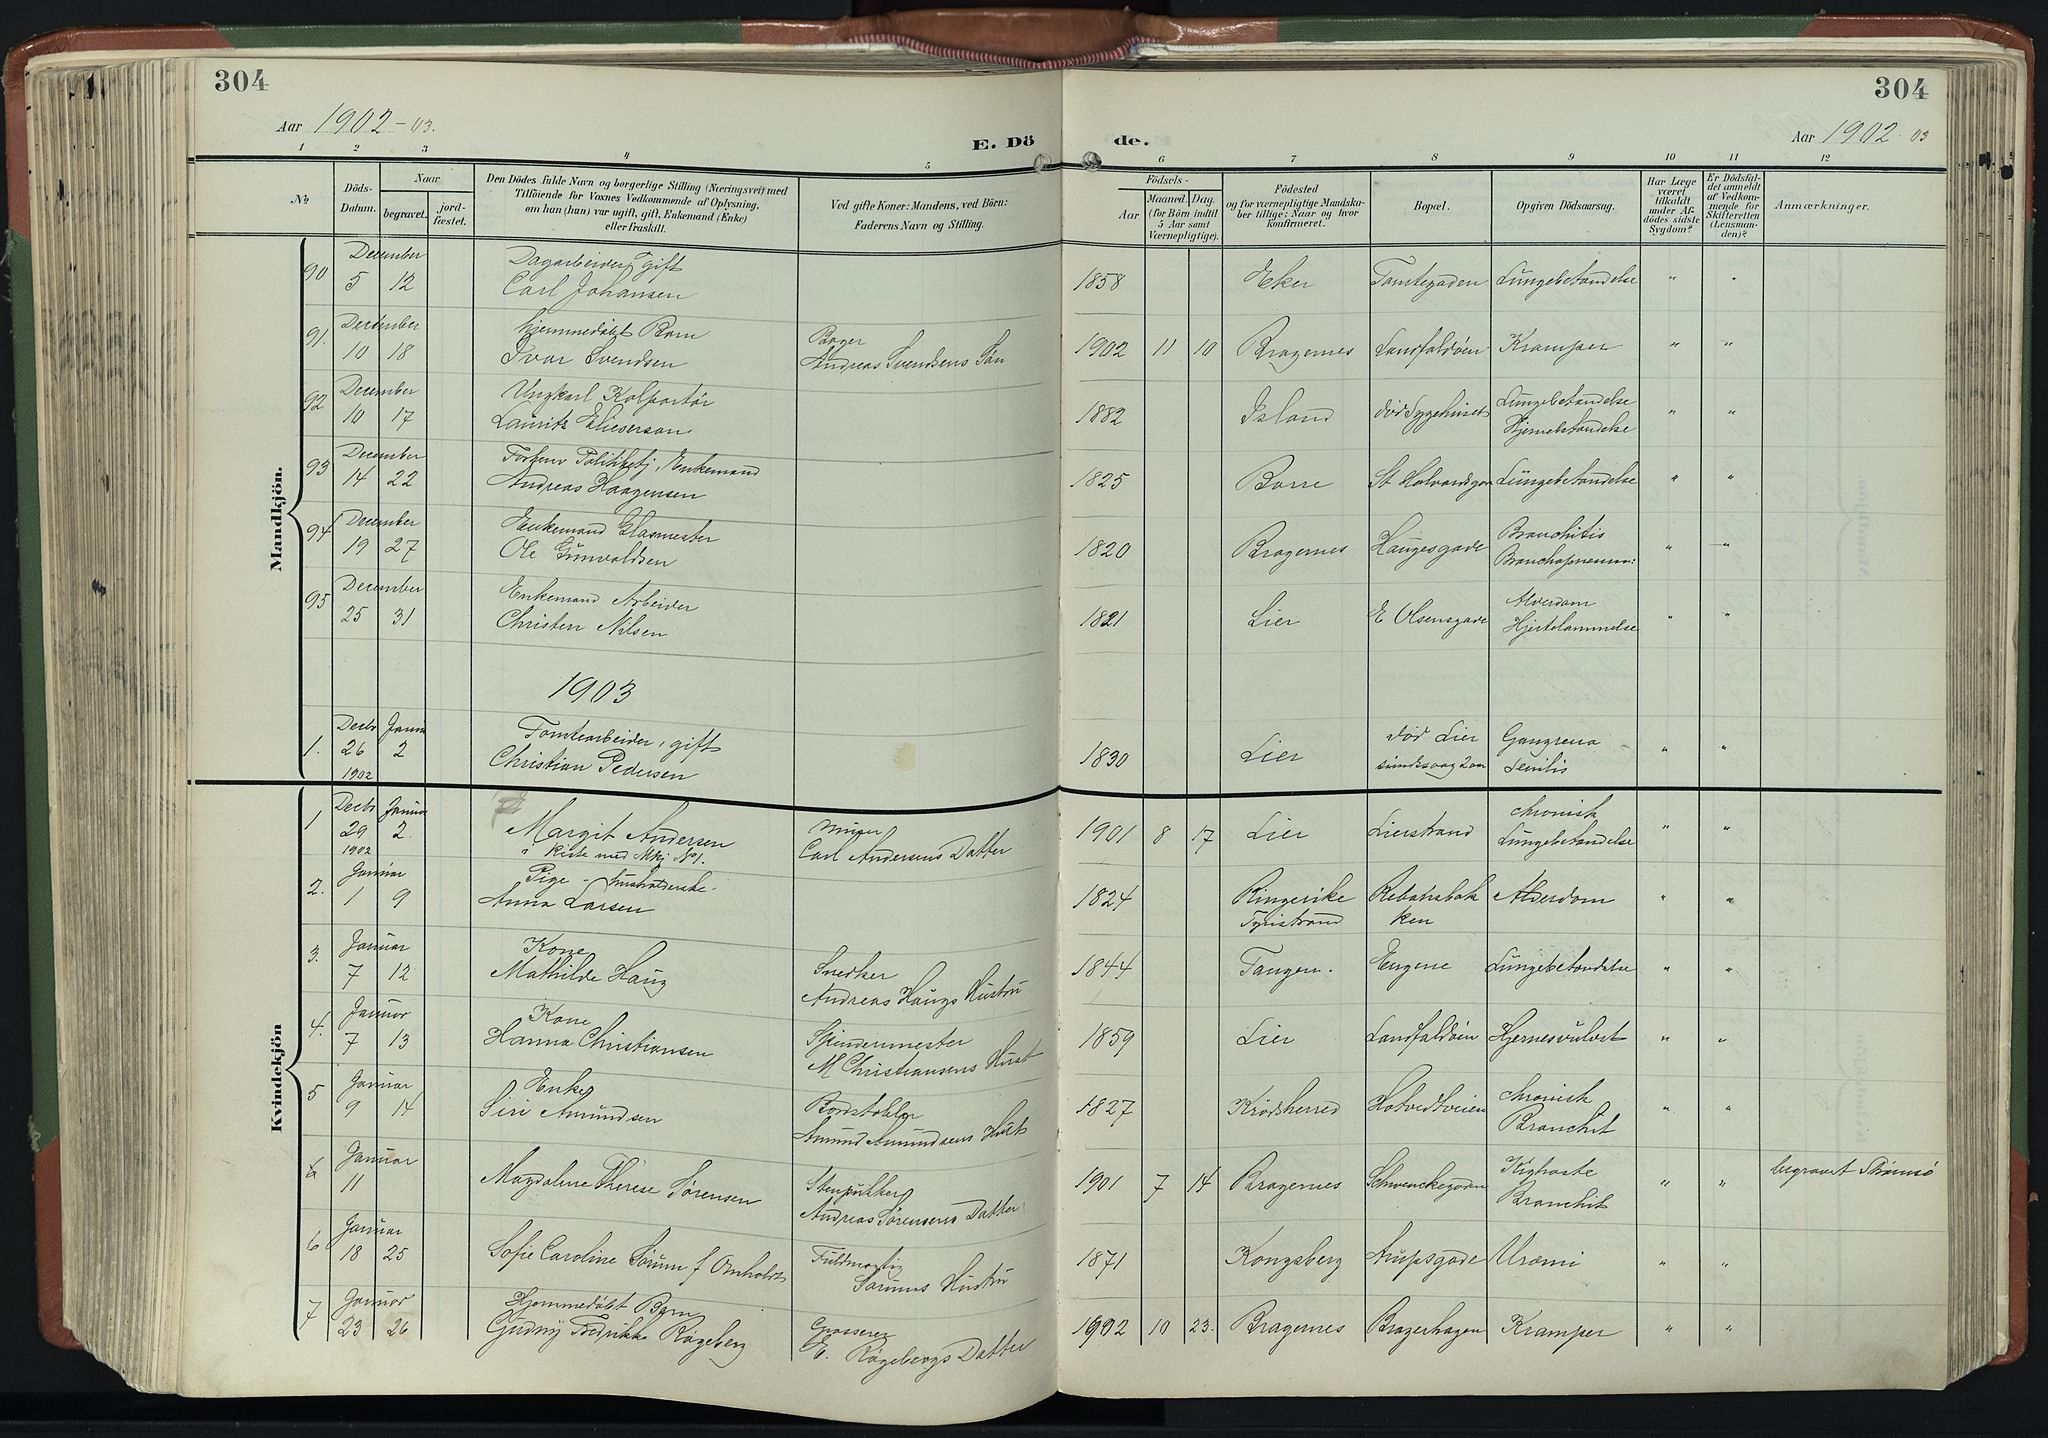 304
304
Aar 1902-03.
E. Dö
de.
Aar 1902-03
1 2 3 4 5 6 7 8 9 10 11 12
№
Döds-
Datum.
Naar
begravet.
jord-
fæstet.
Den Dödes fulde Navn og borgerlige Stilling (Næringsvei) med
Tilföiende for Voxnes Vedkommende af Oplysning,
om han (hun) var ugift, gift, Enkemand (Enke)
eller fraskilt.
Ved gifte Koner: Mandens, ved Börn:
Faderens Navn og Stilling.
Födsels-
Aar
Maaned. Dag.
(for Börn indtil
5 Aar samt
Værnepligtige).
Födested
og for værnepligtige Mandska-
ber tillige: Naar og hvor
konfirmeret.
Bopæl.
Opgiven Dödsaarsag.
Har Læge
været
tilkaldt
under Af-
dödes sidste
Sygdom?
Er Dödsfal-
det anmeldt
af Vedkom-
mende for
Skifteretten
(Lensman-
den)?
Anmærkninger.
Mandkjön.
90 December Dagarbeider, gift
5 12 Carl Johansen 1858 Eker Tomtegaden Lungebetændelse " "
91. December Hjemmedøbt Barn Bager
10 18 Ivar Svendsen Andreas Svendsens Søn 1902 11 10 Bragernes Landfaldøen Kramper " "
92 December Ungkarl Kolportør Lungebetændelse
10 17 Laurits Elieserson 1882 Island død Sygehuset Hjernebetændelse " "
93 December Forhenv Politibetj, Enkemand
14 22 Andreas Haagensen 1825 Borre St Halvardsgan Lungebetændelse " "
94 December Enkemand Glasmester Bronchitis
19 27 Ole Gunvaldsen 1820 Bragernes Haugesgade Bronchopneum: " "
95 December Enkemand Arbeider Alderdom
25 31 Christen Nilsen 1821 Lier E Olsensgade Hjertelammelse " "
1903
1. Decbr Januar Tomtearbeider, gift død Lier Gangrena
26 2 Christian Pedersen 1830 Lier senilis " "
1902
Kvindekjön
1 Decbr Januar chronisk
29 2. Margit Andersen Carl Andersens Datter 1901 8 17 Lier Lierstrand Lungebetændelse " "
1902 i kiste med Mkj No 1.
2. Januar Pige - husholderske -
1 9 Anna Larsen 1824 Ringerike Rebansbak Alderdom " "
Tyristrand ken
3. Januar Kone Snedker
7 12 Mathilde Haug Andreas Haugs Hustru 1844 Tangen. Eugene Lungebetændelse " "
4. Januar Kone Spindermester
7 13 Hanna Christiansen M Christiansens Hust 1859 Lier Landfaldøen Hjernesvulst " "
5 Januar Enke chronisk
9 14 Siri Amundsen Amund Amundsens Hust 1827 Krødsherred Hotvedtveien Bronchit " "
6 Januar Kighoste
11 Magdalene Therese Sørensen Andreas Sørensens Datter 1901 7 14 Bragernes Schwenckegaden Bronchit " " begravet Strømsø
6 Januar Fuldmægtig
18 25 Sofie Caroline Sørum f Omholdt Sørums Hustru 1871 Kongsberg Arupsgade Uræmi " "
7 Januar Hjemmedøbt Barn Grosserer
23 26 Gudny Fredrikke Røgeberg E. Røgebergs Datter 1902 10 23. Bragernes Bragerhagen Kramper " "